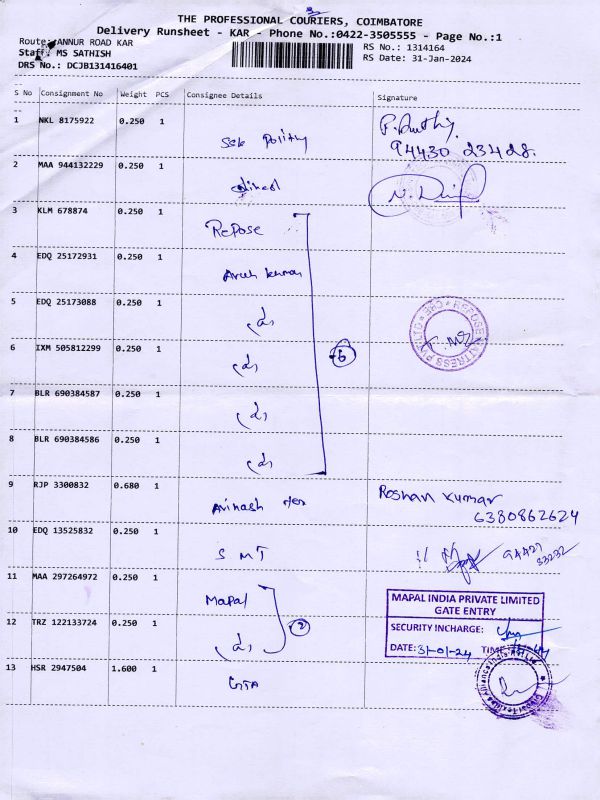 THE PROFESSIONAL COURIERS, COIMBATORE
Delivery Runsheet - KAR - Phone No.:0422-3505555 - Page No.:1
Route: ANNUR ROAD KAR
RS No.: 1314164
Staff: MS SATHISH
RS Date: 31-Jan-2024
DRS No.: DCJB131416401
S No Consignment No Weight PCS Consignee Details Signature
1 NKL 8175922 0.250 1
94430 23428.
2 MAA 944132229 0.250 1
3 KLM 678874 0.250 1 Repose
4 EDQ 25172931 0.250 1 Arun kumar
5 EDQ 25173088 0.250 1
6 IXM 505812299 0.250 1
6
7 BLR 690384587 0.250 1
8 BLR 690384586 0.250 1
9 RJP 3300832 0.680 1 Avinash Roshan Kumar
6380862624
10 EDQ 13525832 0.250 1 S M T 94427
33232
11 MAA 297264972 0.250 1 Mapal
MAPAL INDIA PRIVATE LIMITED
GATE ENTRY
12 TRZ 122133724 0.250 1
2
SECURITY INCHARGE:
DATE: 31-01-24 TIME
13 HSR 2947504 1.600 1 GTA